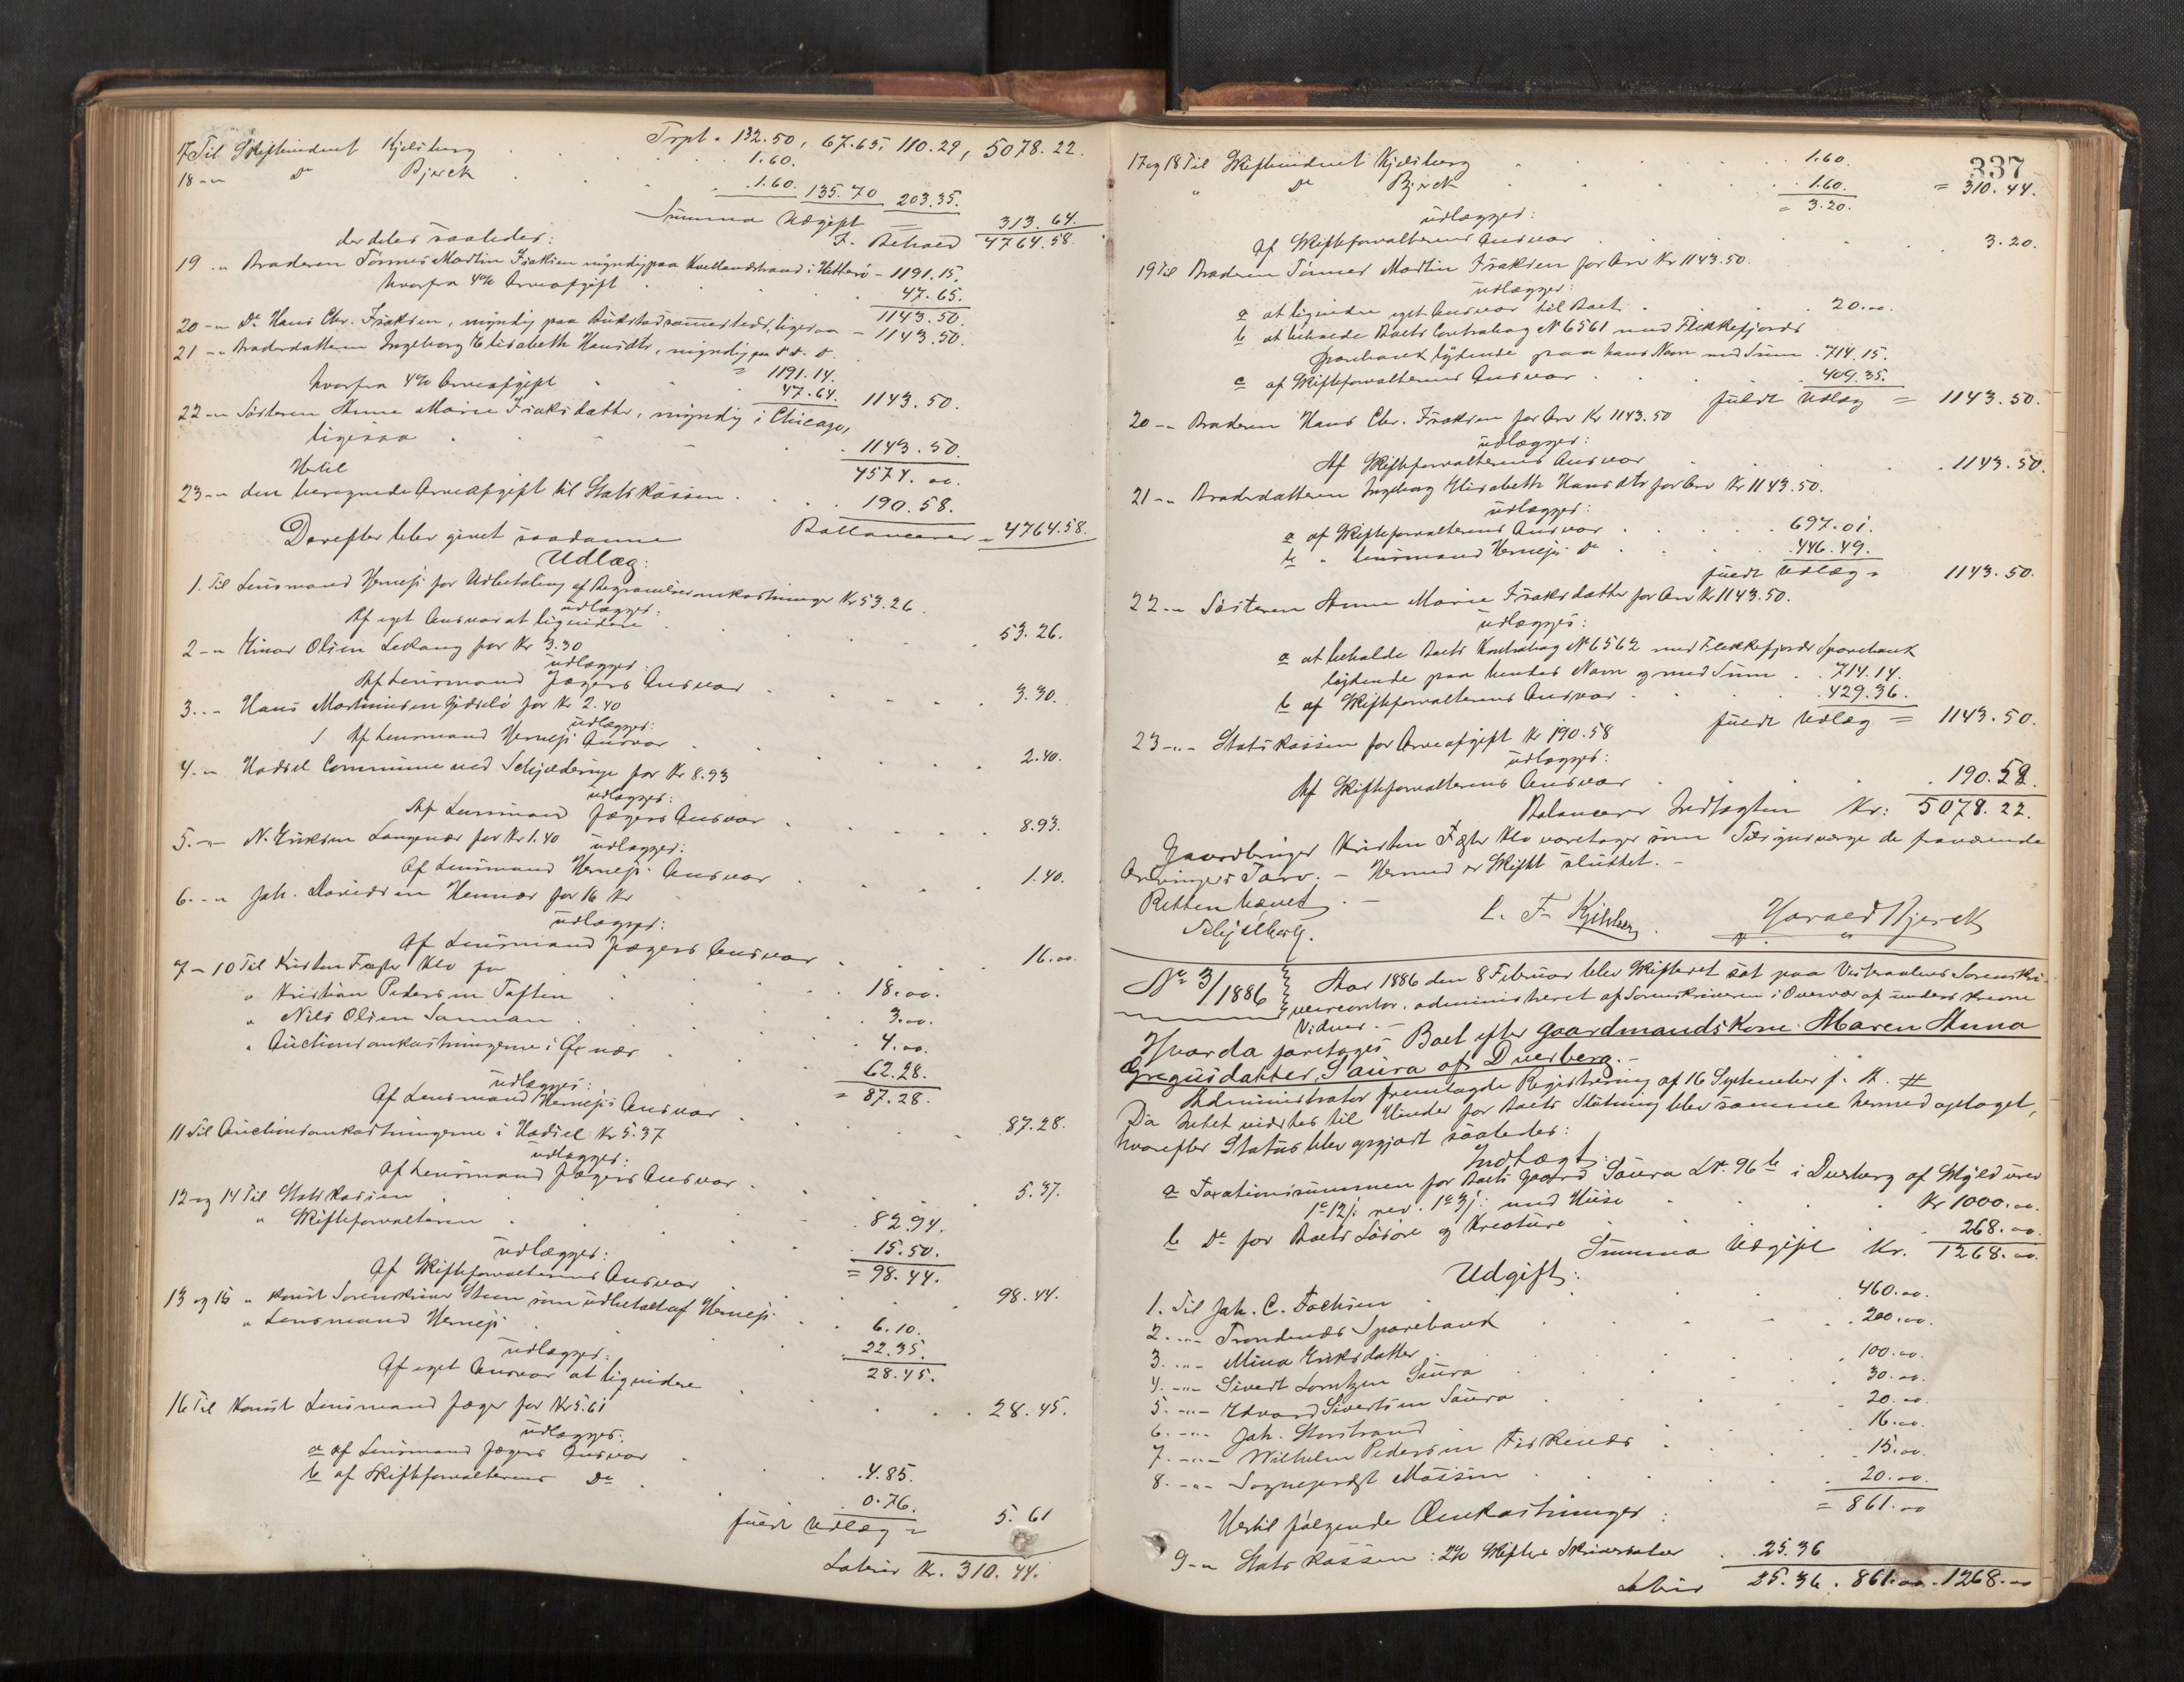 Trpt. 132.50, 67.65, 110.29, 5078.22.
17 Til Skiftevidnet Kjelsberg 1.60.
18 -"- Do Bjerck 1.60. 135.70 203.35.
Summa Udgift 313.64.
I. Behold 4764.58.
der deles saaledes:
19 -"- Broderen Tønnes Martin Isaksen myndig paa Kvellandstrand i Hitterø - 1191.15.
hvorfra 4% Arveafgift 47.65.
1143.50.
20 -"- Do Hans Chr. Isaksen, myndig paa sammesteds, ligesaa - 1143.50.
21 -"- Broderdatteren Ingeborg Elisabeth Hansdtr, myndig
= 1191.14.
hvorfra 4% Arveafgift 47.64. 1143.50.
22 -"- Søsteren Anne Marie Isaksdatter, myndig i Chicago,
ligesaa 1143.50.
Hertil 4574.00.
23 -"- den beregnede Arveafgift til Statskassen 190.58.
Ballancerer = 4764.58.
Derefter blev givet saadanne
Udlæg:
1. Til Lensmand Hernejs for Udbetaling af Begravelsesomkostninger Kr 53.26.
udlægges:
Af eget Ansvar at liqvidere 53.26.
2 -"- Einar Olsen Lekang for Kr 3.30
udlægges:
Af Lensmand Jægers Ansvar 3.30.
3 -"- Hans Mortinussen for Kr 2.40
udlægges:
Af Lensmand Hernejs Ansvar 2.40.
4 -"- Hadsel Commune ved Schjelderup for Kr 8.93
udlægges:
Af Lensmand Jægers Ansvar 8.93.
5 -"- N. Eriksen Langenæs for Kr 1.40
udlægges:
Af Lensmand Hernejs Ansvar 1.40.
6 -"- Joh. Davidsen Hennæs for 16 Kr
udlægges:
Af Lensmand Jægers Ansvar 16.00.
7-10 Til Kristen Fægter Klo for 18.00.
" Kristian Pedersen Toften 3.00.
" Nils Olsen Sannan 4.00.
" Auctionsomkostningerne i Øxnæs 62.28.
= 87.28.
udlægges:
Af Lensmand Hernejs Ansvar 87.28.
11 Til Auctionsomkostningerne i Hadsel Kr 5.37
udlægges:
Af Lensmand Jægers Ansvar 5.37.
12 og 14 Til Statskassen 82.94.
" Skifteforvalteren 15.50.
= 98.44.
udlægges:
Af Skifteforvalterens Ansvar 98.44.
13 og 15 " konst Sorenskriver Steen som udbetalt af Hernejs 6.10.
" Lensmand Hernejs 22.35.
28.45.
udlægges:
Af eget Ansvar at liqvidere 28.45.
16 Til konst Lensmand Jæger for Kr 5.61
udlægges:
a af Lensmand Jægers Ansvar 4.85.
b af Skifteforvalterens Do 0.76.
fuldt Udlæg = 5.61
Lateris Kr. 310.44.
337
= 310.44.
17 og 18 Til Skiftevidnet Kjelsberg 1.60.
" Do Bjerck 1.60.
= 3.20.
udlægges:
Af Skifteforvalterens Ansvar 3.20.
19 Til Broderen Tønnes Martin Isaksen for Arv Kr 1143.50.
udlægges:
a at liqvidere eget Ansvar til Boet 20.00.
b at beholde Boets Contrabog No 6561 med Flekkefjords
Sparebank lydende paa hans Navn med Sum 714.15.
c af Skifteforvalterens Ansvar 409.35.
fuldt Udlæg = 1143.50.
20 -"- Broderen Hans Chr. Isaksen for Arv Kr 1143.50
udlægges:
Af Skifteforvalterens Ansvar 1143.50.
21 -"- Broderdatteren Ingeborg Elisabeth Hansdtr for Arv Kr 1143.50.
udlægges:
a af Skifteforvalterens Ansvar 697.01.
b " Lensmand Hernejs Do 446.49.
fuldt Udlæg = 1143.50.
22 -"- Søsteren Anne Marie Isaksdatter for Arv Kr 1143.50.
udlægges:
a at beholde Boets Kontrabog No 6562 med Flekkefjords Sparebank
lydende paa hendes Navn og med Sum 714.14.
b af Skifteforvalterens Ansvar 429.36.
fuldt Udlæg = 1143.50.
23 -"- Statskassen for Arveafgift Kr 190.58
udlægges:
Af Skifteforvalterens Ansvar 190.58.
Balancerer Indtægten Kr: 5078.22.
Gaardbruger Kristen Fægter Klo varetager som Tilsynsværge de fraværende
Arvingers Tarv. - Hermed er Skiftet sluttet. -
Retten hævet. -
L. F. Kjelsberg. Harald Bjerck
No 3/1886 Aar 1886 den 8 Februar blev Skifteret sat paa Vesteraalens Sorenskri-
vercontor, administreret af Sorenskriveren i Overvær af underskrevne
Vidner. -
Hvorda foretoges Boet efter Gaardmandskone Maren Anna
Gregusdatter, Saura af Dverberg. -
Administrator fremlagde Registrering af 16 September f. A. #
Da Intet vidstes til Hinder for Boets Slutning blev samme hermed optaget,
hvorefter Status blev opgjort saaledes:
Indtægt:
a Taxationssummen for Boets Gaard Saura L.Nr. 96b i Dverberg af Skyld urev
rev. med Huse Kr 1000.00.
b Do for Boets Løsøre og Kreature 268.00.
Summa Udgift Kr. 1268.00.
Udgift:
1. Til Joh. C. Fochsen 460.00.
2. -"- Trondenæs Sparebank 200.00.
3. -"- Mina Eriksdatter 100.00.
4. -"- Sivert Lorntzen Saura 30.00.
5. -"- Edvard Sivertsen Saura 20.00.
6. -"- Joh. Storstrand 16.00.
7. -"- Wilhelm Pedersen Fiskenæs 15.00.
8. -"- Sogneprest Mossin 20.00.
= 861.00
Hertil følgende Omkostninger:
9 -"- Statskassen: 2% Skifte & Skriversalær 25.36
Lateris 25.36. 861.00. 1268.00